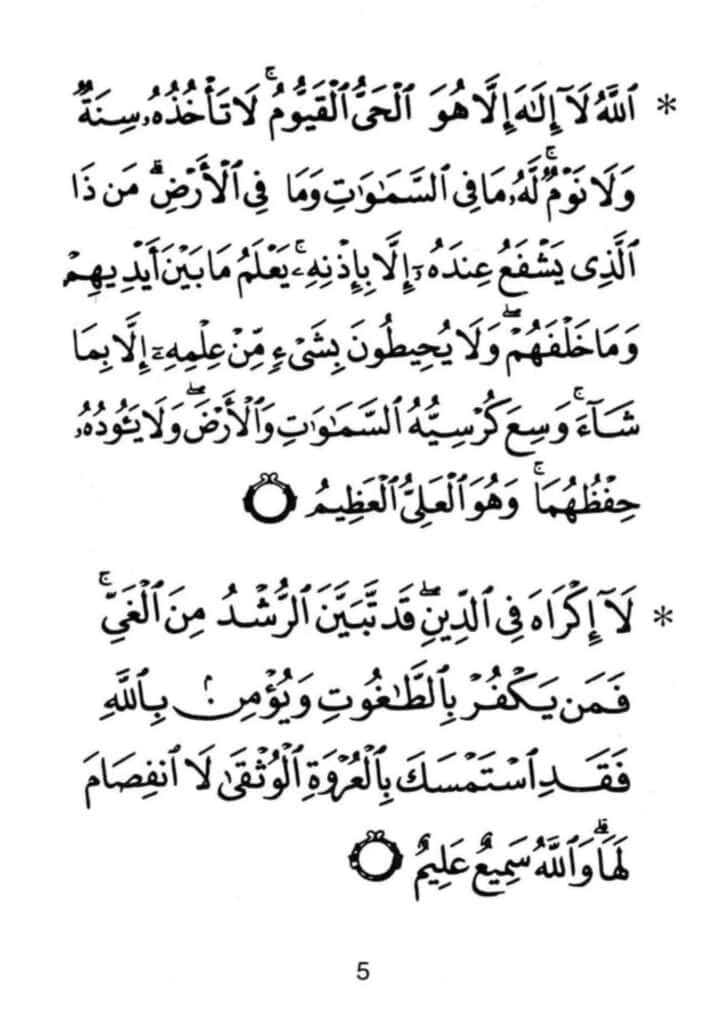 * ٱللَّهُ لَآ إِلَٰهَ إِلَّا هُوَ ٱلْحَىُّ ٱلْقَيُّومُ ۚ لَا تَأْخُذُهُۥ سِنَةٌ
وَلَا نَوْمٌ ۚ لَّهُۥ مَا فِى ٱلسَّمَٰوَٰتِ وَمَا فِى ٱلْأَرْضِ ۗ مَن ذَا
ٱلَّذِى يَشْفَعُ عِندَهُۥٓ إِلَّا بِإِذْنِهِۦ ۚ يَعْلَمُ مَا بَيْنَ أَيْدِيهِمْ
وَمَا خَلْفَهُمْ ۖ وَلَا يُحِيطُونَ بِشَىْءٍ مِّنْ عِلْمِهِۦٓ إِلَّا بِمَا
شَآءَ ۚ وَسِعَ كُرْسِيُّهُ ٱلسَّمَٰوَٰتِ وَٱلْأَرْضَ ۖ وَلَا يَـُٔودُهُۥ
حِفْظُهُمَا ۚ وَهُوَ ٱلْعَلِىُّ ٱلْعَظِيمُ
* لَآ إِكْرَاهَ فِى ٱلدِّينِ ۖ قَد تَّبَيَّنَ ٱلرُّشْدُ مِنَ ٱلْغَىِّ ۚ
فَمَن يَكْفُرْ بِٱلطَّٰغُوتِ وَيُؤْمِنۢ بِٱللَّهِ
فَقَدِ ٱسْتَمْسَكَ بِٱلْعُرْوَةِ ٱلْوُثْقَىٰ لَا ٱنفِصَامَ
لَهَا ۗ وَٱللَّهُ سَمِيعٌ عَلِيمٌ
5